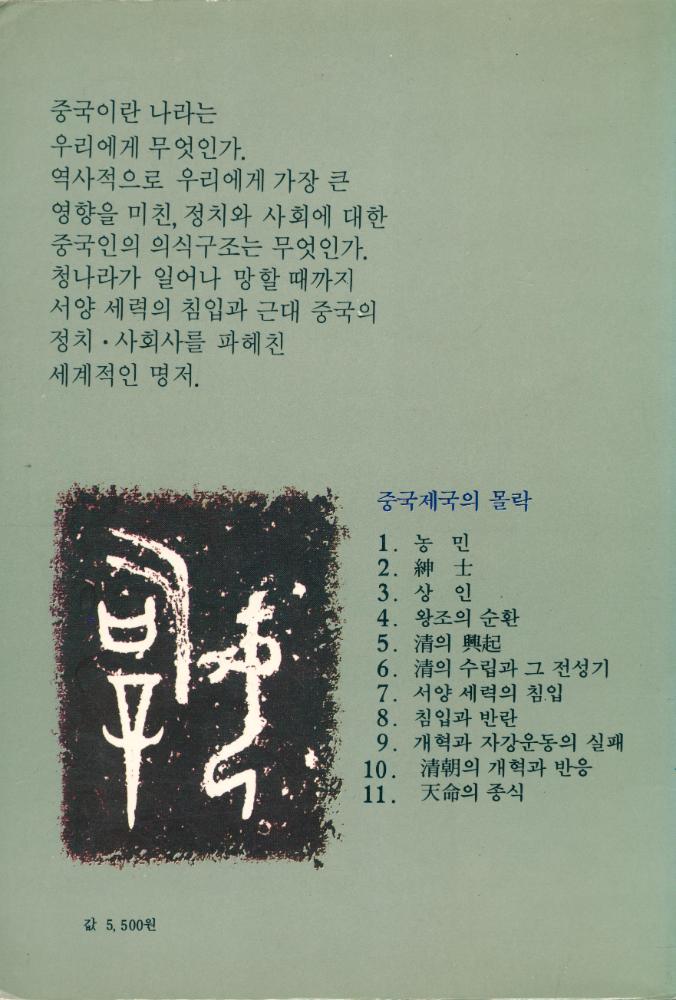 중국이란 나라는
우리에게 무엇인가.
역사적으로 우리에게 가장 큰
영향을 미친, 정치와 사회에 대한
중국인의 의식구조는 무엇인가.
청나라가 일어나 망할 때까지
서양 세력의 침입과 근대 중국의
정치·사회사를 파헤친
세계적인 명저.
중국제국의 몰락
1. 농 민
2. 紳 士
3. 상 인
4. 왕조의 순환
5. 清의 興起
6. 清의 수립과 그 전성기
7. 서양 세력의 침입
8. 침입과 반란
9. 개혁과 자강운동의 실패
10. 清朝의 개혁과 반응
11. 天命의 종식
값 5,500원